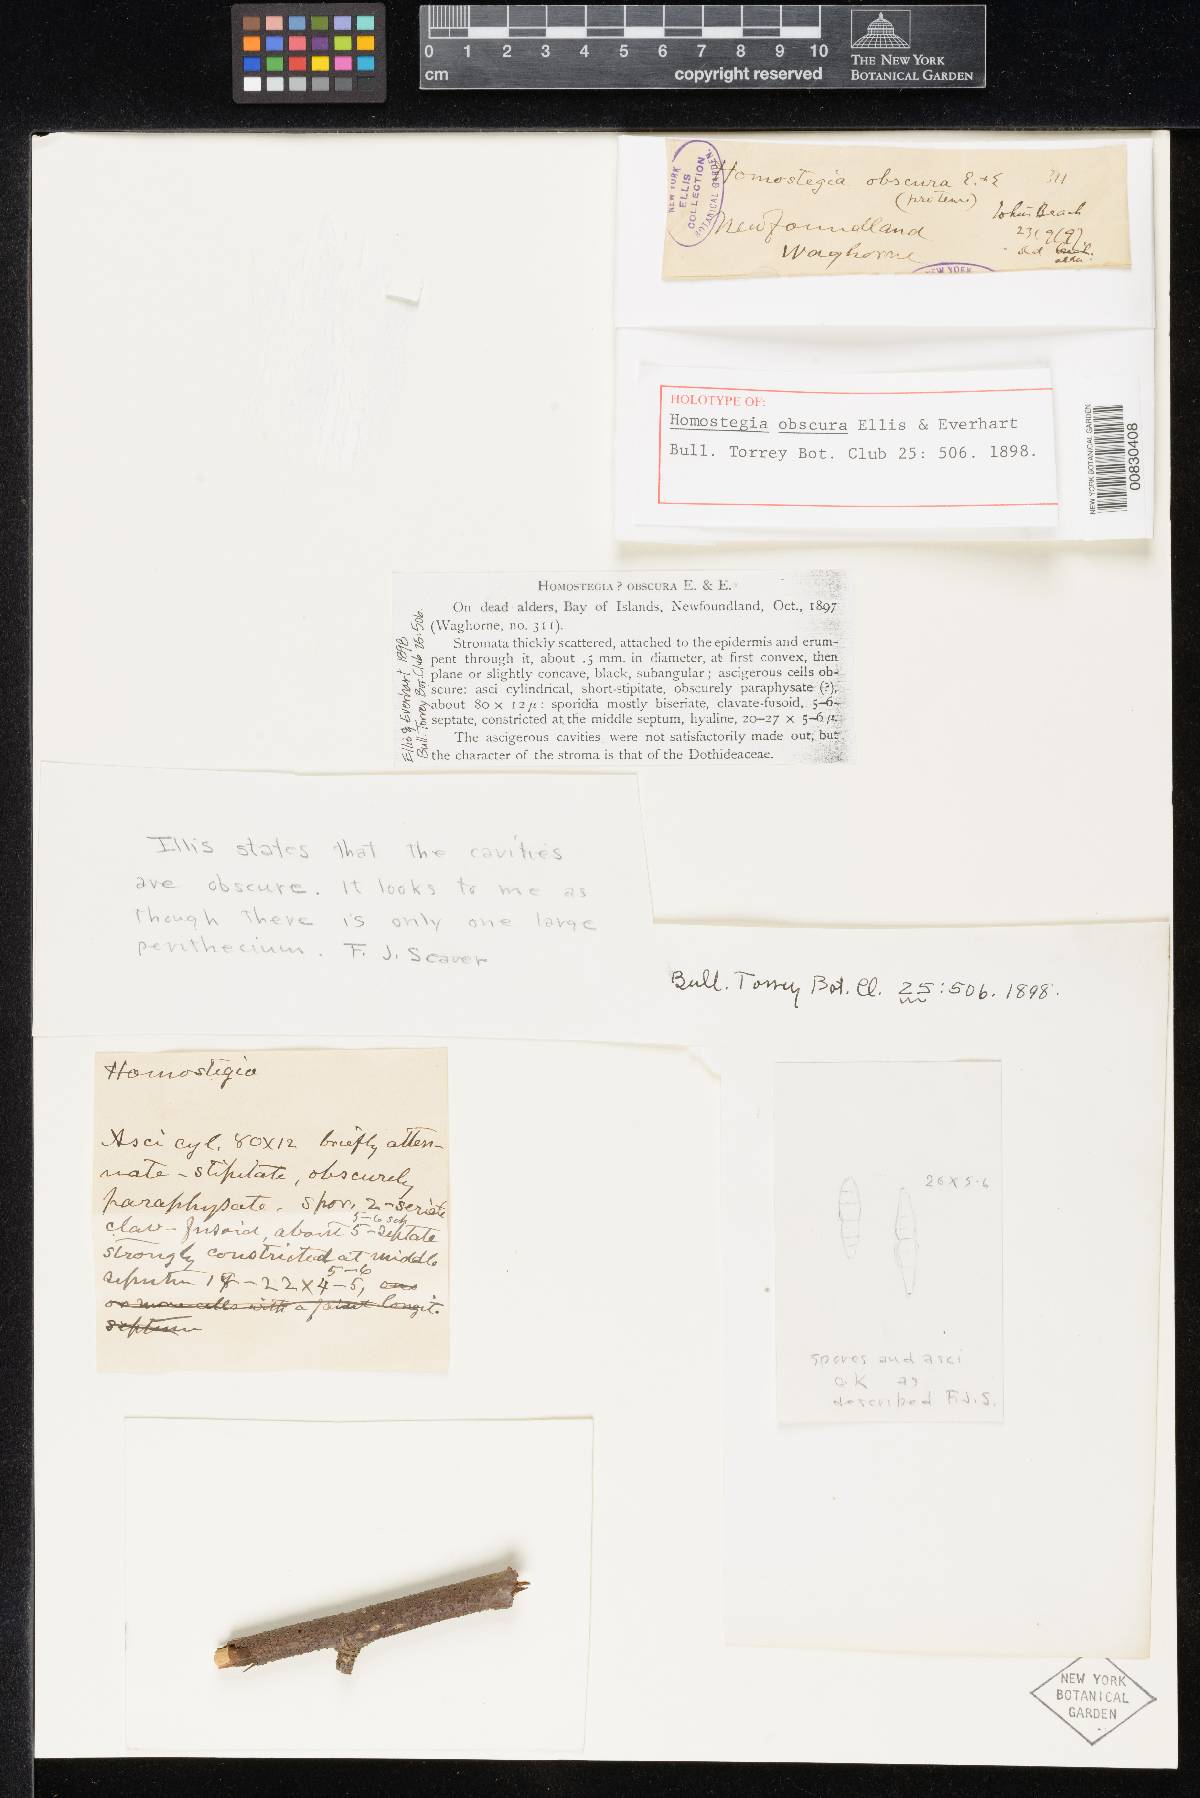 0 1 2 3 4 5 6 7 8 9 10
cm
copyright reserved
THE NEW YORK
BOTANICAL GARDEN
NEW YORK
ELLIS
COLLECTION
BOTANICAL GARDEN
Homostegia obscura E. & E 311
Newfoundland
Waghorne
Beach
NEW YORK
HOLOTYPE OF:
Homostegia obscura Ellis & Everhart
Bull. Torrey Bot. Club 25: 506. 1898.
NEW YORK BOTANICAL GARDEN
00830408
HOMOSTEGIA? OBSCURA E. & E.
On dead alders, Bay of Islands, Newfoundland, Oct., 1897
(Waghorne, no. 311).
Stromata thickly scattered, attached to the epidermis and erum-
pent through it, about .5 mm. in diameter, at first convex, then
plane or slightly concave, black, subangular; ascigerous cells ob-
scure: asci cylindrical, short-stipitate, obscurely paraphysate (?),
about 80 × 12 μ: sporidia mostly biseriate, clavate-fusoid, 5–6-
septate, constricted at the middle septum, hyaline, 20–27 × 5–6 μ.
The ascigerous cavities were not satisfactorily made out, but
the character of the stroma is that of the Dothideaceae.
Ellis & Everhart 1898
Bull. Torrey Bot. Club 25:506.
Ellis states that the cavities
are obscure. It looks to me as
though there is only one large
perithecium. F. J. Seaver
Bull. Torrey Bot. Cl. 25:506. 1898.
Homostegia
Asci cyl. 80x12 briefly atten-
uate-stipitate, obscurely
paraphysate. spor. 2-seriate
clav-fusoid, about 5-septate
strongly constricted at middle
5-6
septum -22x4-5, one
or more cells with a faint longit.
septum
26 x 5-6
spores and asci
O.K as
described F.J.S.
NEW YORK
BOTANICAL
GARDEN